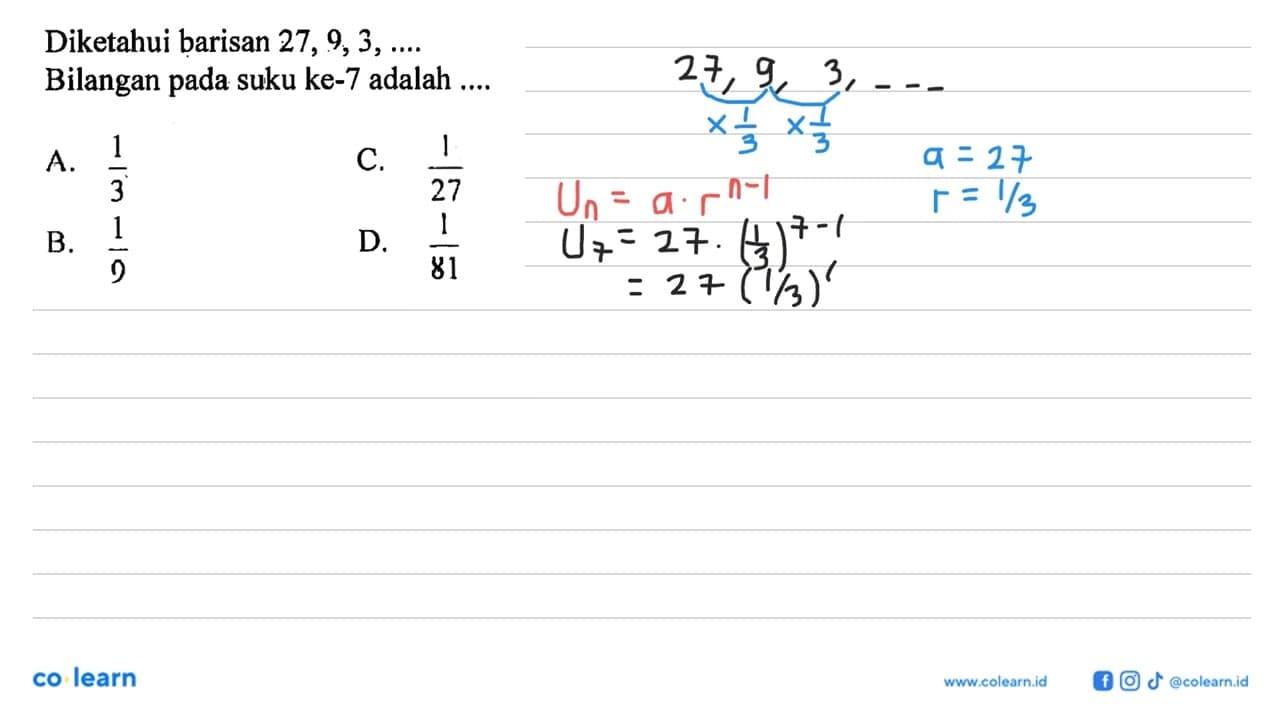 Diketahui barisan 27, 9, 3, ....
Bilangan pada suku ke-7 adalah ....
A. 1/3
C. 1/27
B. 1/9
D. 1/81
27, 9, 3, ---
× 1/3 × 1/3
a = 27
r = 1/3
Un = a · r^n-1
U7 = 27 · (1/3)^7-1
= 27 (1/3)
co learn
www.colearn.id
@colearn.id